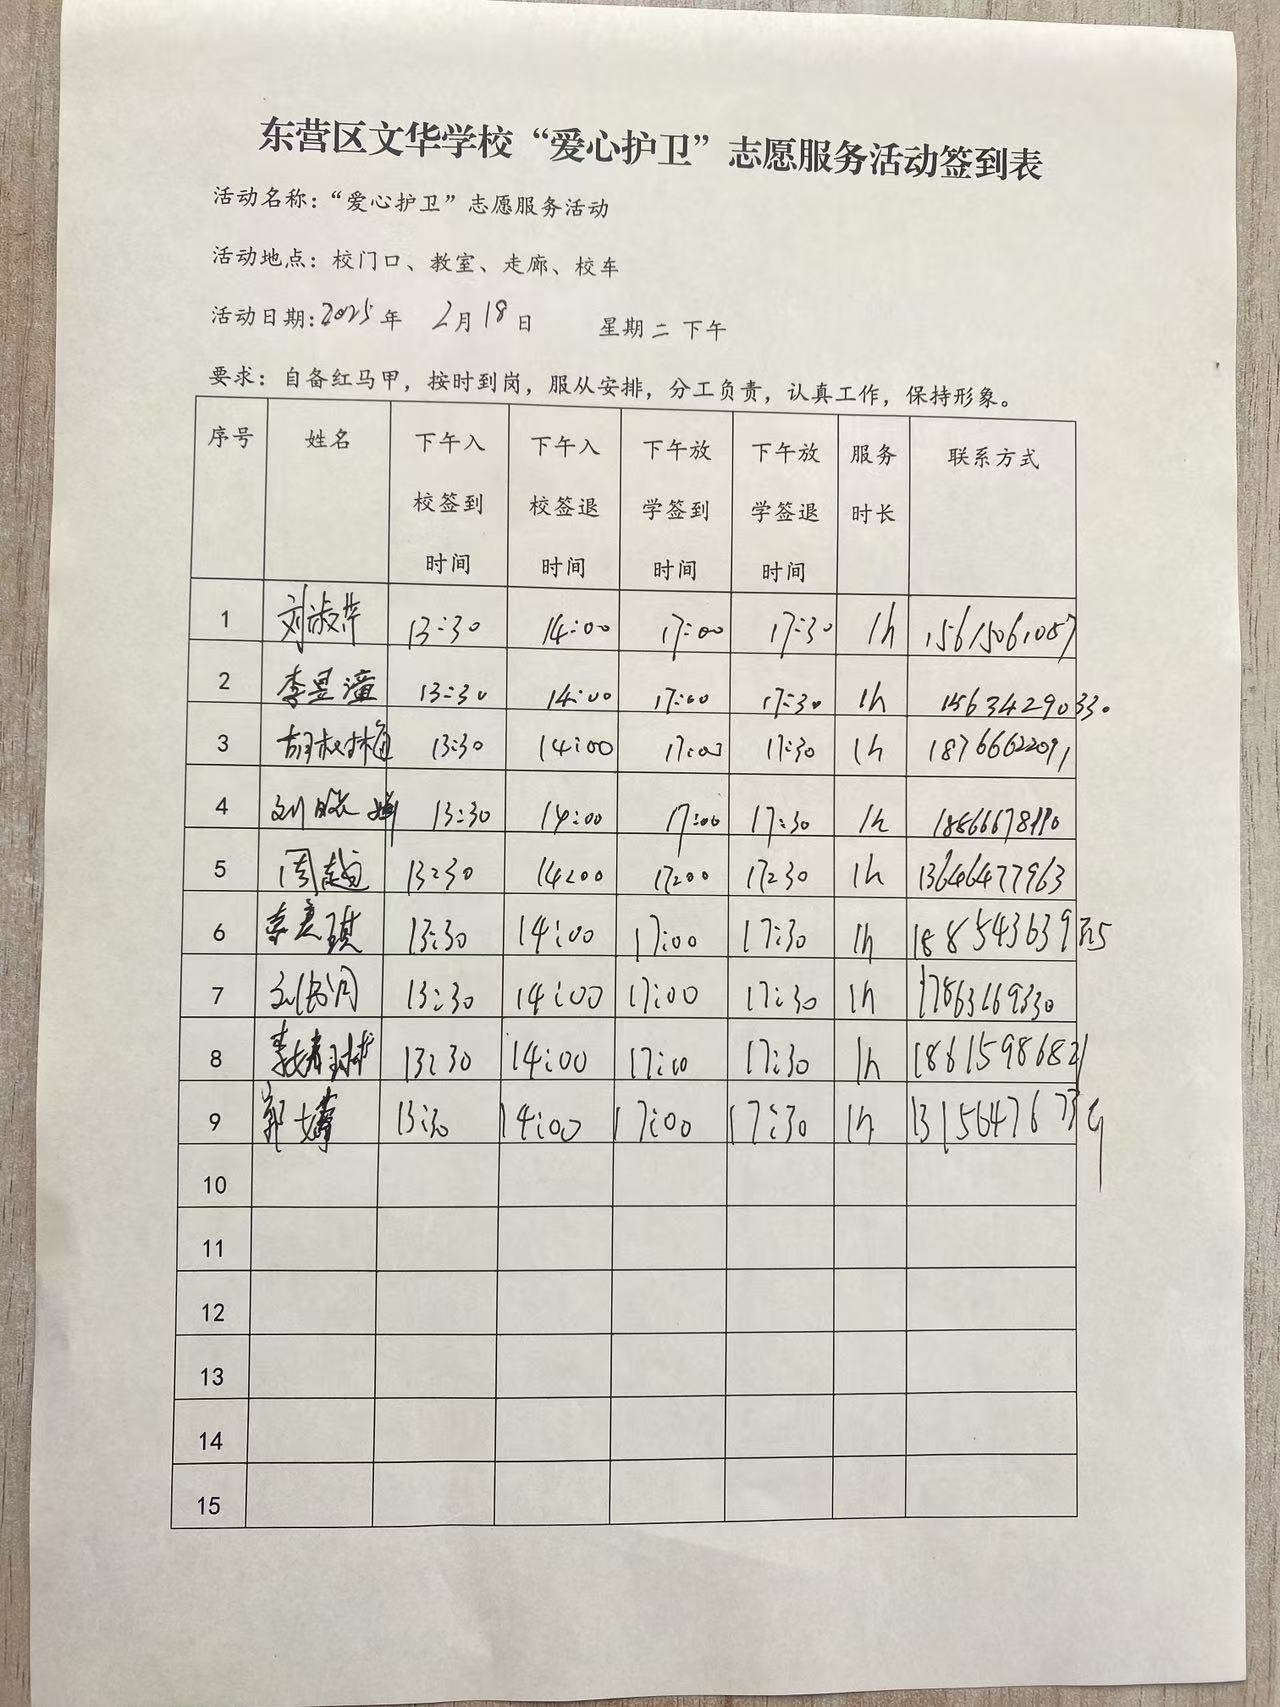 东营区文华学校“爱心护卫”志愿服务活动签到表
活动名称：“爱心护卫”志愿服务活动
活动地点：校门口、教室、走廊、校车
活动日期：2025年 2月18日 星期二下午
要求：自备红马甲，按时到岗，服从安排，分工负责，认真工作，保持形象。
序号 姓名 下午入校签到时间 下午入校签退时间 下午放学签到时间 下午放学签退时间 服务时长 联系方式
1 刘淑萍 13:30 14:00 17:00 17:30 1h 15615061087
2 李昱潼 13:30 14:00 17:00 17:30 1h 15634429033０
3 13:30 14:00 17:00 17:30 1h 18766622091
4 13:30 14:00 17:00 17:30 1h
5 周越 13:30 14:00 17:00 17:30 1h 13646477963
6 13:30 14:00 17:00 17:30 1h
7 13:30 14:00 17:00 17:30 1h 17863169330
8 13:30 14:00 17:00 17:30 1h 18615986821
9 郭婷 13:30 14:00 17:00 17:30 1h
10
11
12
13
14
15